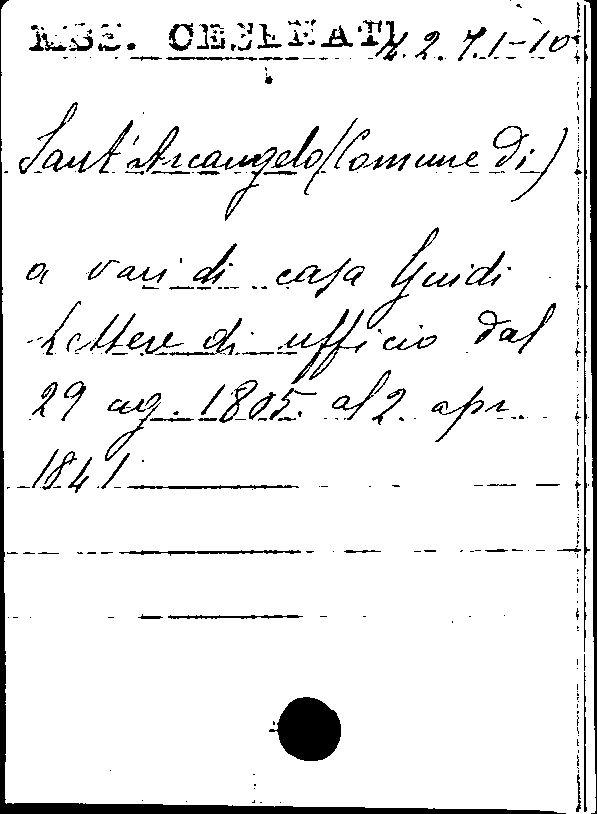 MSS. CESENATI 42.71-10
Sant'Arcangelo (Comune di)
a vari di casa Guidi
Lettere di ufficio dal
29 ag. 1805 al 2. apr.
1841